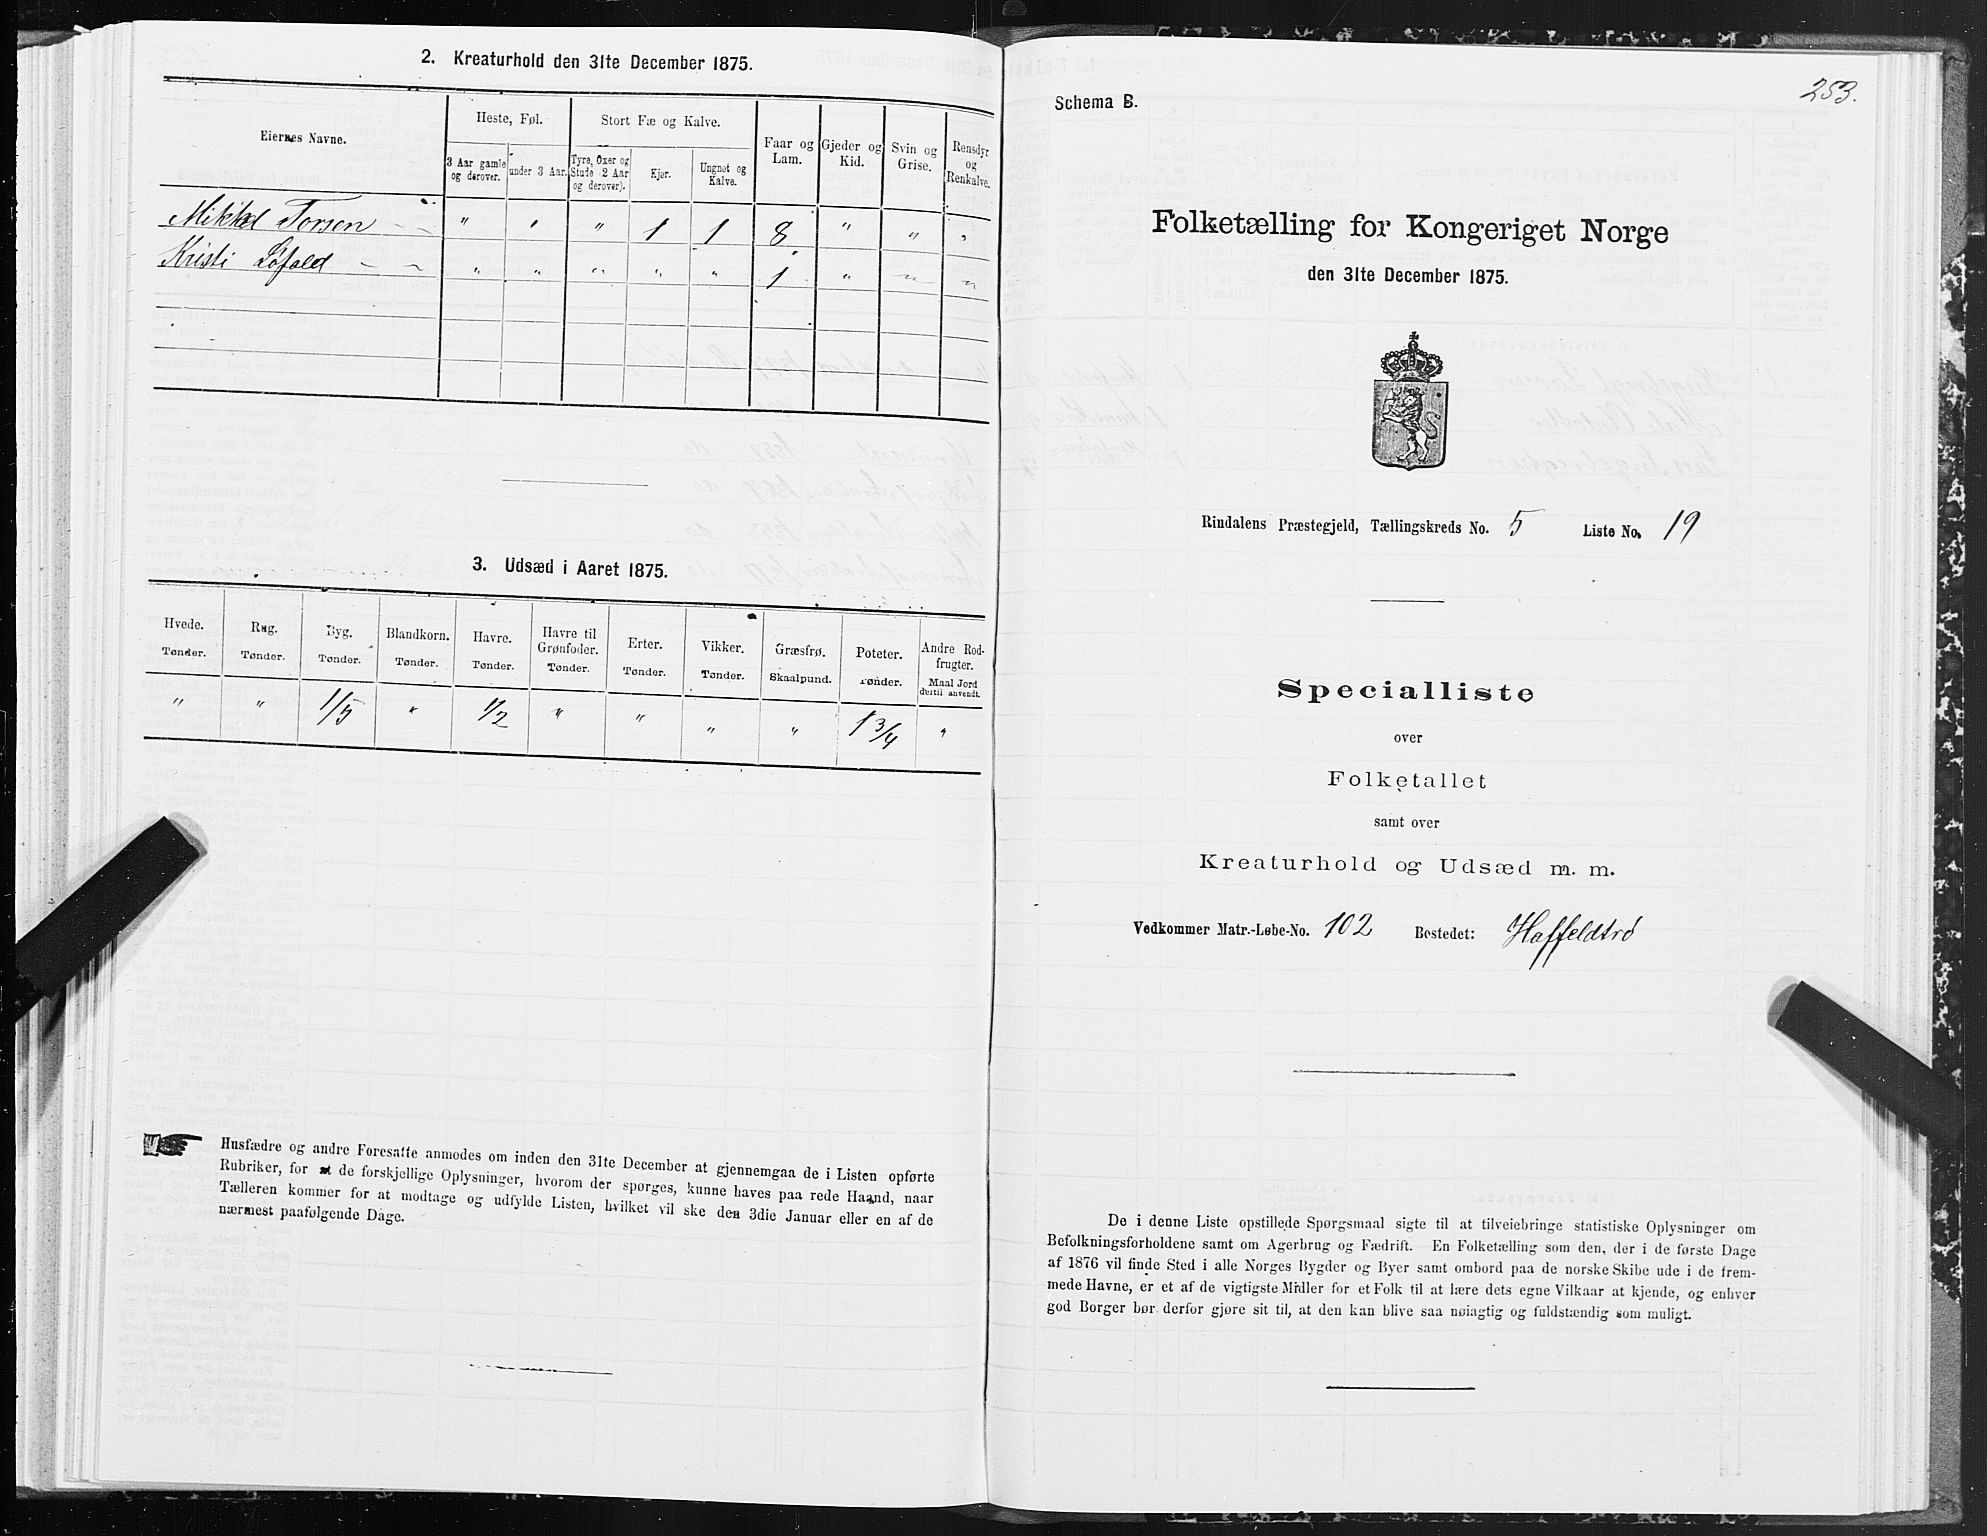 2. Kreaturhold den 31te December 1875.
Eiernes Navne.
Heste, Føl.
Stort Fæ og Kalve.
3 Aar gamle og derover.
under 3 Aar.
Tyre, Oxer og Stude (2 Aar og derover).
Kjør.
Ungnøt og Kalve.
Faar og Lam.
Gjeder og Kid.
Svin og Grise.
Rensdyr og Renkalve.
Mikkel Torsen - - " " " 1 1 8 " " "
Kristi Løfald - - " " " " " 1 " " "
3. Udsæd i Aaret 1875.
Hvede. Tønder.
Rug. Tønder.
Byg. Tønder.
Blandkorn. Tønder.
Havre. Tønder.
Havre til Grønfoder. Tønder.
Erter. Tønder.
Vikker. Tønder.
Græsfrø. Skaalpund.
Poteter. Tønder.
Andre Rodfrugter. Maal Jord dertil anvendt.
" " 1/5 " 1/2 " " " " 1 3/4 "
Husfædre og andre Foresatte anmodes om inden den 31te December at gjennemgaa de i Listen opførte
Rubriker, for at de forskjellige Oplysninger, hvorom der spørges, kunne haves paa rede Haand, naar
Tælleren kommer for at modtage og udfylde Listen, hvilket vil ske den 3die Januar eller en af de
nærmest paafølgende Dage.
253.
Schema B.
Folketælling for Kongeriget Norge
den 31te December 1875.
Rindalens Præstegjeld, Tællingskreds No. 5 Liste No. 19
Specialliste
over
Folketallet
samt over
Kreaturhold og Udsæd m. m.
Vedkommer Matr.-Løbe-No. 102 Bostedet: Haffeldtrø
De i denne Liste opstillede Spørgsmaal sigte til at tilveiebringe statistiske Oplysninger om
Befolkningsforholdene samt om Agerbrug og Fædrift. En Folketælling som den, der i de første Dage
af 1876 vil finde Sted i alle Norges Bygder og Byer samt ombord paa de norske Skibe ude i de frem-
mede Havne, er et af de vigtigste Midler for et Folk til at lære dets egne Vilkaar at kjende, og enhver
god Borger bør derfor gjøre sit til, at den kan blive saa nøiagtig og fuldstændig som muligt.